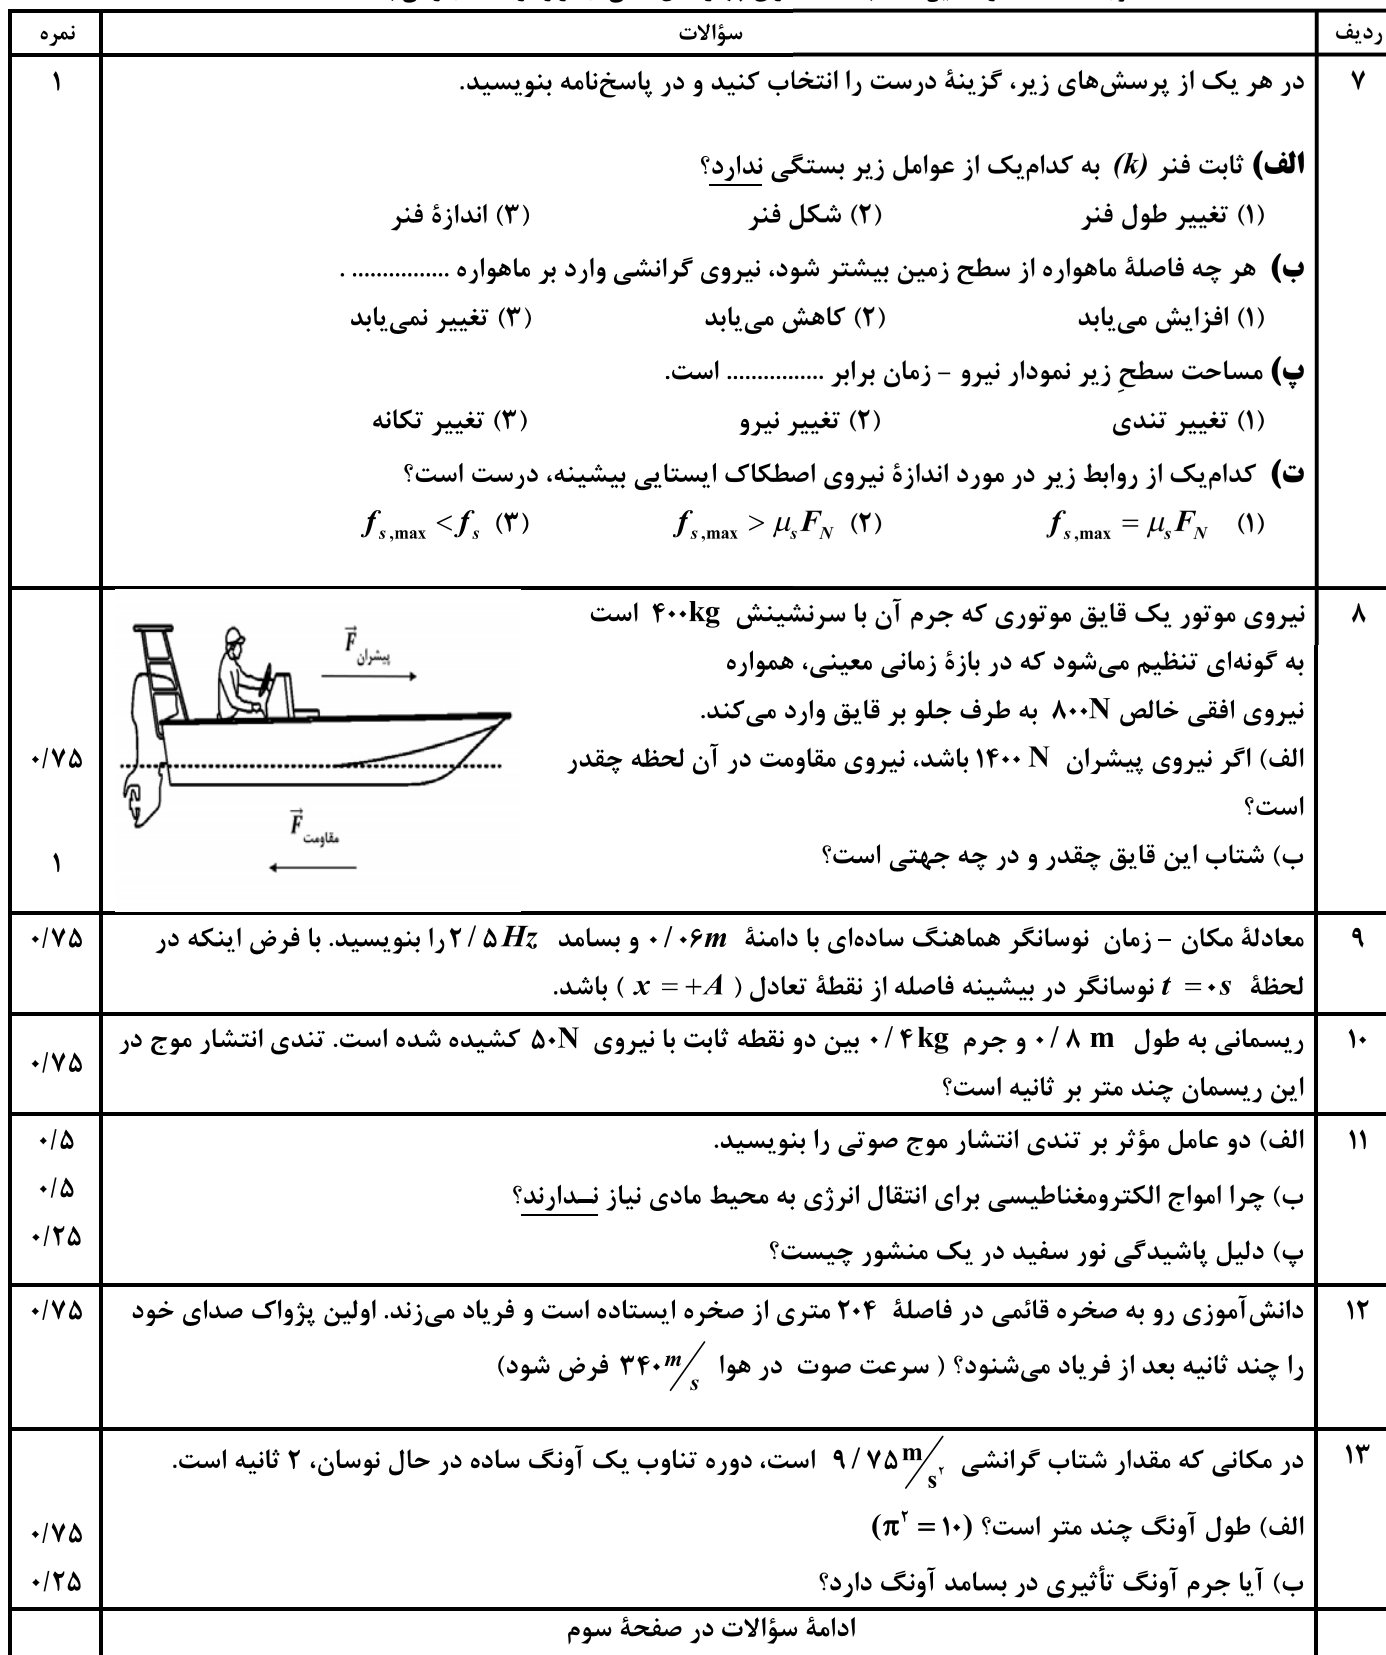 ردیف سؤالات نمره
۷ در هر یک از پرسش‌های زیر، گزینهٔ درست را انتخاب کنید و در پاسخ‌نامه بنویسید. ۱
الف) ثابت فنر (k) به کدام‌یک از عوامل زیر بستگی ندارد؟
(۱) تغییر طول فنر (۲) شکل فنر (۳) اندازهٔ فنر
ب) هر چه فاصلهٔ ماهواره از سطح زمین بیشتر شود، نیروی گرانشی وارد بر ماهواره ................ .
(۱) افزایش می‌یابد (۲) کاهش می‌یابد (۳) تغییر نمی‌یابد
پ) مساحت سطحِ زیر نمودار نیرو – زمان برابر ................ است.
(۱) تغییر تندی (۲) تغییر نیرو (۳) تغییر تکانه
ت) کدام‌یک از روابط زیر در مورد اندازهٔ نیروی اصطکاک ایستایی بیشینه، درست است؟
(۱) f s,max = μs FN (۲) f s,max > μs FN (۳) f s,max < f s
۸ نیروی موتور یک قایق موتوری که جرم آن با سرنشینش ۴۰۰kg است
به گونه‌ای تنظیم می‌شود که در بازهٔ زمانی معینی، همواره
نیروی افقی خالص ۸۰۰N به طرف جلو بر قایق وارد می‌کند.
الف) اگر نیروی پیشران ۱۴۰۰ N باشد، نیروی مقاومت در آن لحظه چقدر ۰/۷۵
است؟
ب) شتاب این قایق چقدر و در چه جهتی است؟ ۱
F پیشران
F مقاومت
۹ معادلهٔ مکان – زمان نوسانگر هماهنگ ساده‌ای با دامنهٔ ۰/۰۶m و بسامد ۲/۵Hz را بنویسید. با فرض اینکه در ۰/۷۵
لحظهٔ t = ۰s نوسانگر در بیشینه فاصله از نقطهٔ تعادل ( x = +A ) باشد.
۱۰ ریسمانی به طول ۰/۸ m و جرم ۰/۴kg بین دو نقطه ثابت با نیروی ۵۰N کشیده شده است. تندی انتشار موج در ۰/۷۵
این ریسمان چند متر بر ثانیه است؟
۱۱ الف) دو عامل مؤثر بر تندی انتشار موج صوتی را بنویسید. ۰/۵
ب) چرا امواج الکترومغناطیسی برای انتقال انرژی به محیط مادی نیاز نـدارند؟ ۰/۵
پ) دلیل پاشیدگی نور سفید در یک منشور چیست؟ ۰/۲۵
۱۲ دانش‌آموزی رو به صخره قائمی در فاصلهٔ ۲۰۴ متری از صخره ایستاده است و فریاد می‌زند. اولین پژواک صدای خود ۰/۷۵
را چند ثانیه بعد از فریاد می‌شنود؟ ( سرعت صوت در هوا ۳۴۰ m/s فرض شود)
۱۳ در مکانی که مقدار شتاب گرانشی ۹/۷۵ m/s۲ است، دوره تناوب یک آونگ ساده در حال نوسان، ۲ ثانیه است.
الف) طول آونگ چند متر است؟ (π۲ = ۱۰) ۰/۷۵
ب) آیا جرم آونگ تأثیری در بسامد آونگ دارد؟ ۰/۲۵
ادامهٔ سؤالات در صفحهٔ سوم